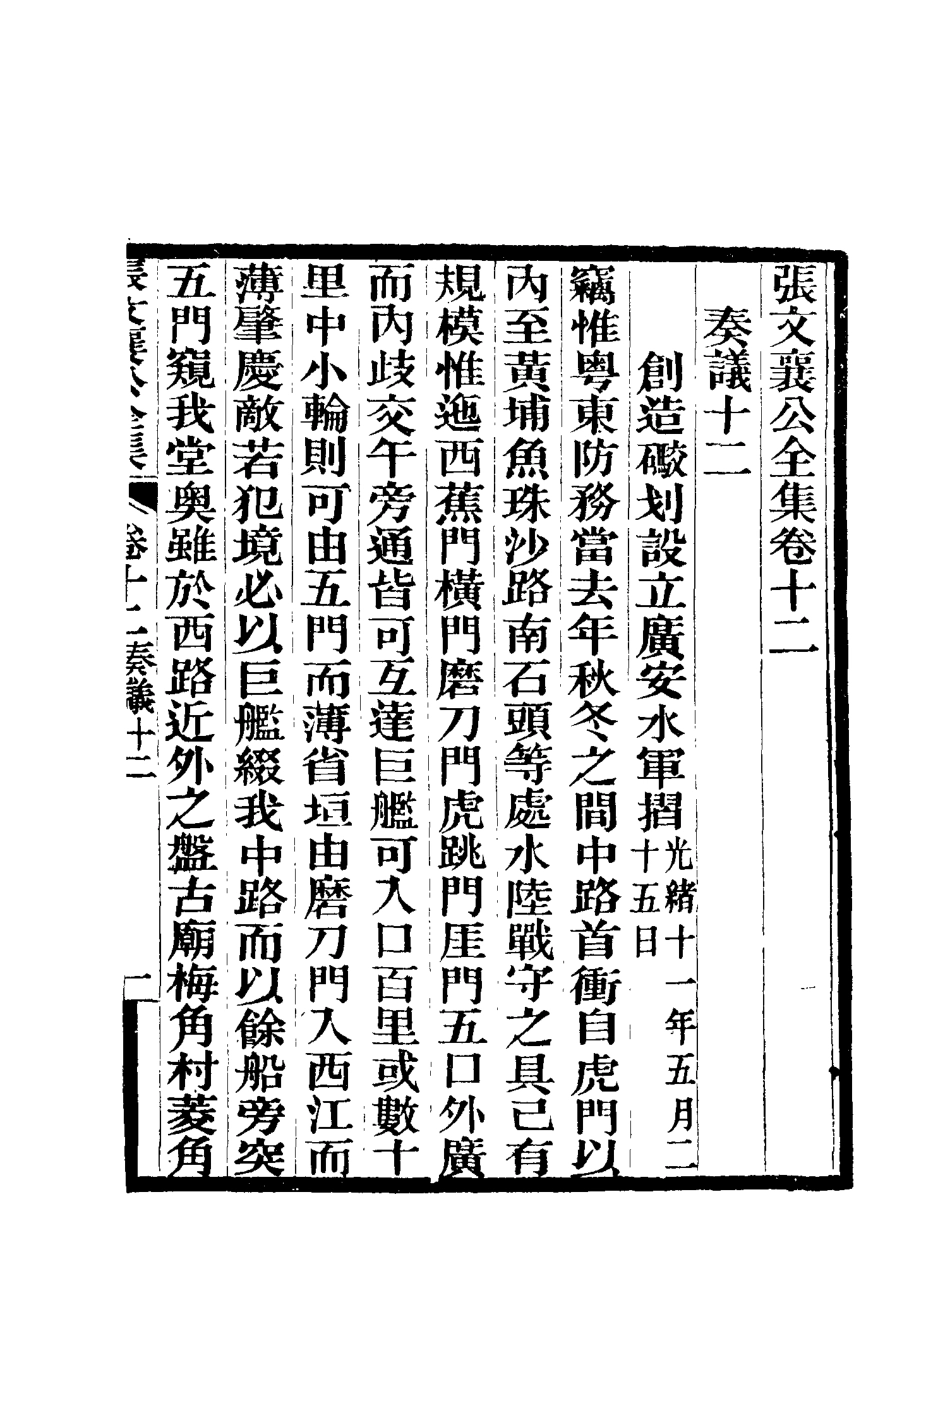 張文襄公全集卷十二
奏議十二
創造礮划設立廣安水軍摺光緒十一年五月二
十五日
竊惟粵東防務當去年秋冬之間中路首衝自虎門以
內至黃埔魚珠沙路南石頭等處水陸戰守之具已有
規模惟迤西蕉門橫門磨刀門虎跳門厓門五口外廣
而內歧交午旁通皆可互達巨艦可入口百里或數十
里中小輪則可由五門而薄省垣由磨刀門入西江而
薄肇慶敵若犯境必以巨艦綴我中路而以餘船旁突
五門窺我堂奧雖於西路近外之盤古廟梅角村菱角
張文襄公全集 卷十二奏議十二 一